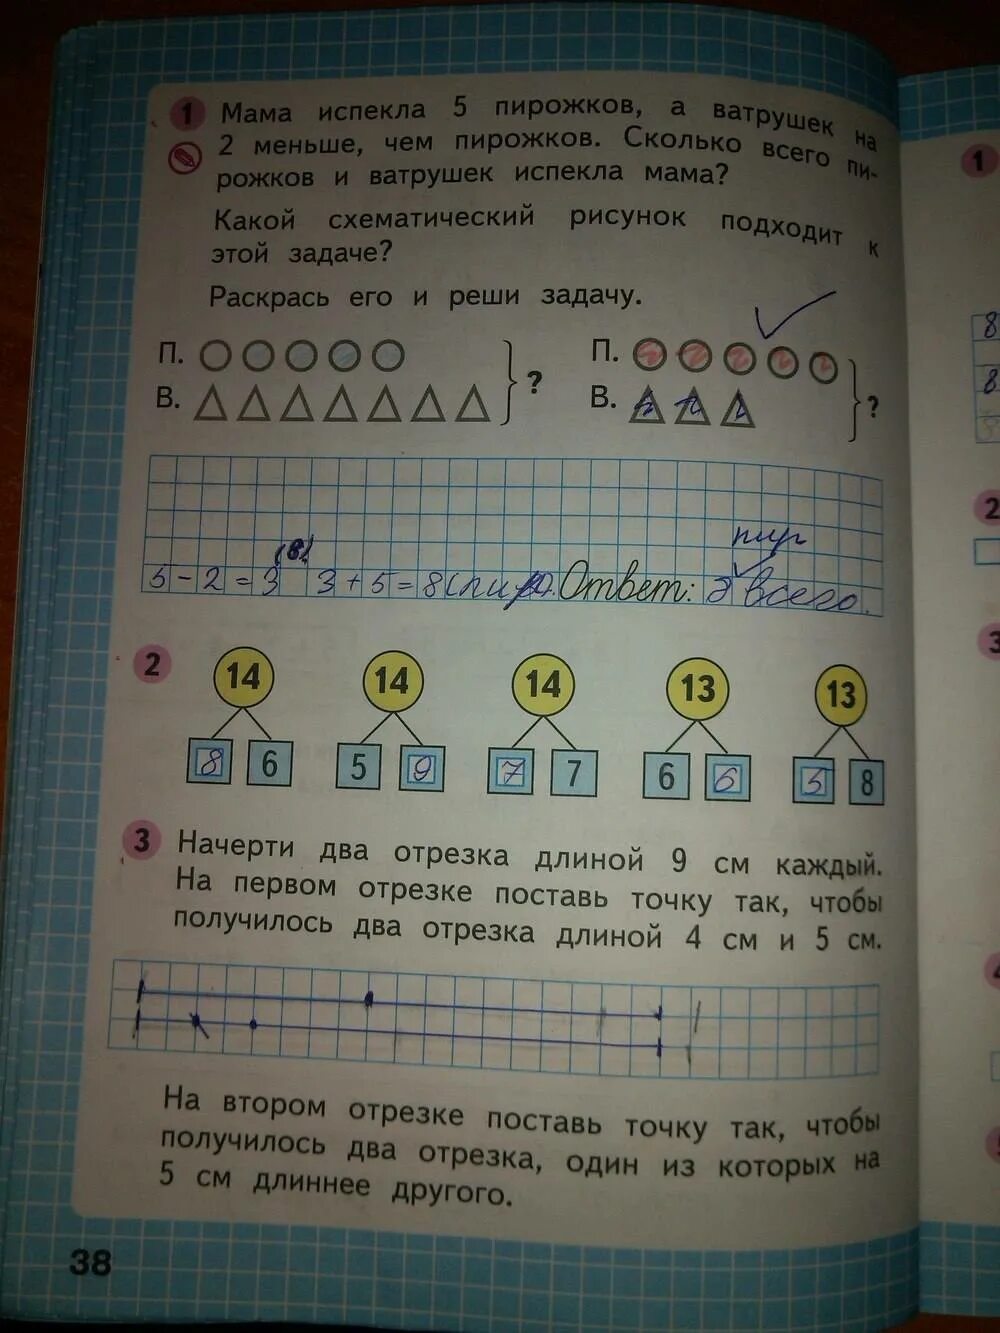 1 Мама испекла 5 пирожков, а ватрушек на
2 меньше, чем пирожков. Сколько всего пи-
рожков и ватрушек испекла мама?
Какой схематический рисунок подходит к
этой задаче?
Раскрась его и реши задачу.
П. П.
В. ? В. ?
пир
(в)
5-2=3 3+5=8( Ответ: всего.
2 14 14 14 13 13
8 6 5 9 7 7 6 6 5 8
3 Начерти два отрезка длиной 9 см каждый.
На первом отрезке поставь точку так, чтобы
получилось два отрезка длиной 4 см и 5 см.
На втором отрезке поставь точку так, чтобы
получилось два отрезка, один из которых на
5 см длиннее другого.
38
1
8
8
2
3
4